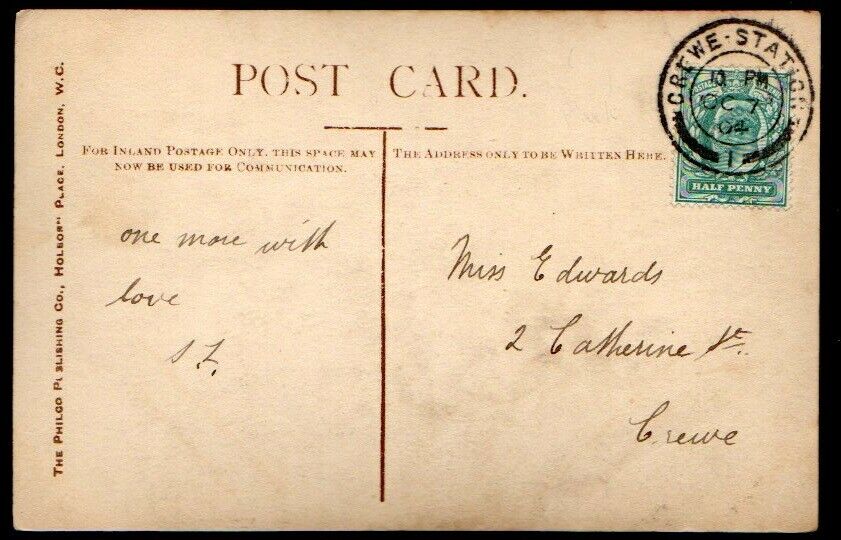 POST CARD.
CREWE-STATION
10 PM
OC 7
04
1
HALF PENNY
FOR INLAND POSTAGE ONLY, THIS SPACE MAY
NOW BE USED FOR COMMUNICATION.
THE ADDRESS ONLY TO BE WRITTEN HERE.
one more with
love
Miss Edwards
2 Catherine St.
Crewe
THE PHILCO PUBLISHING CO., HOLBORN PLACE, LONDON, W.C.